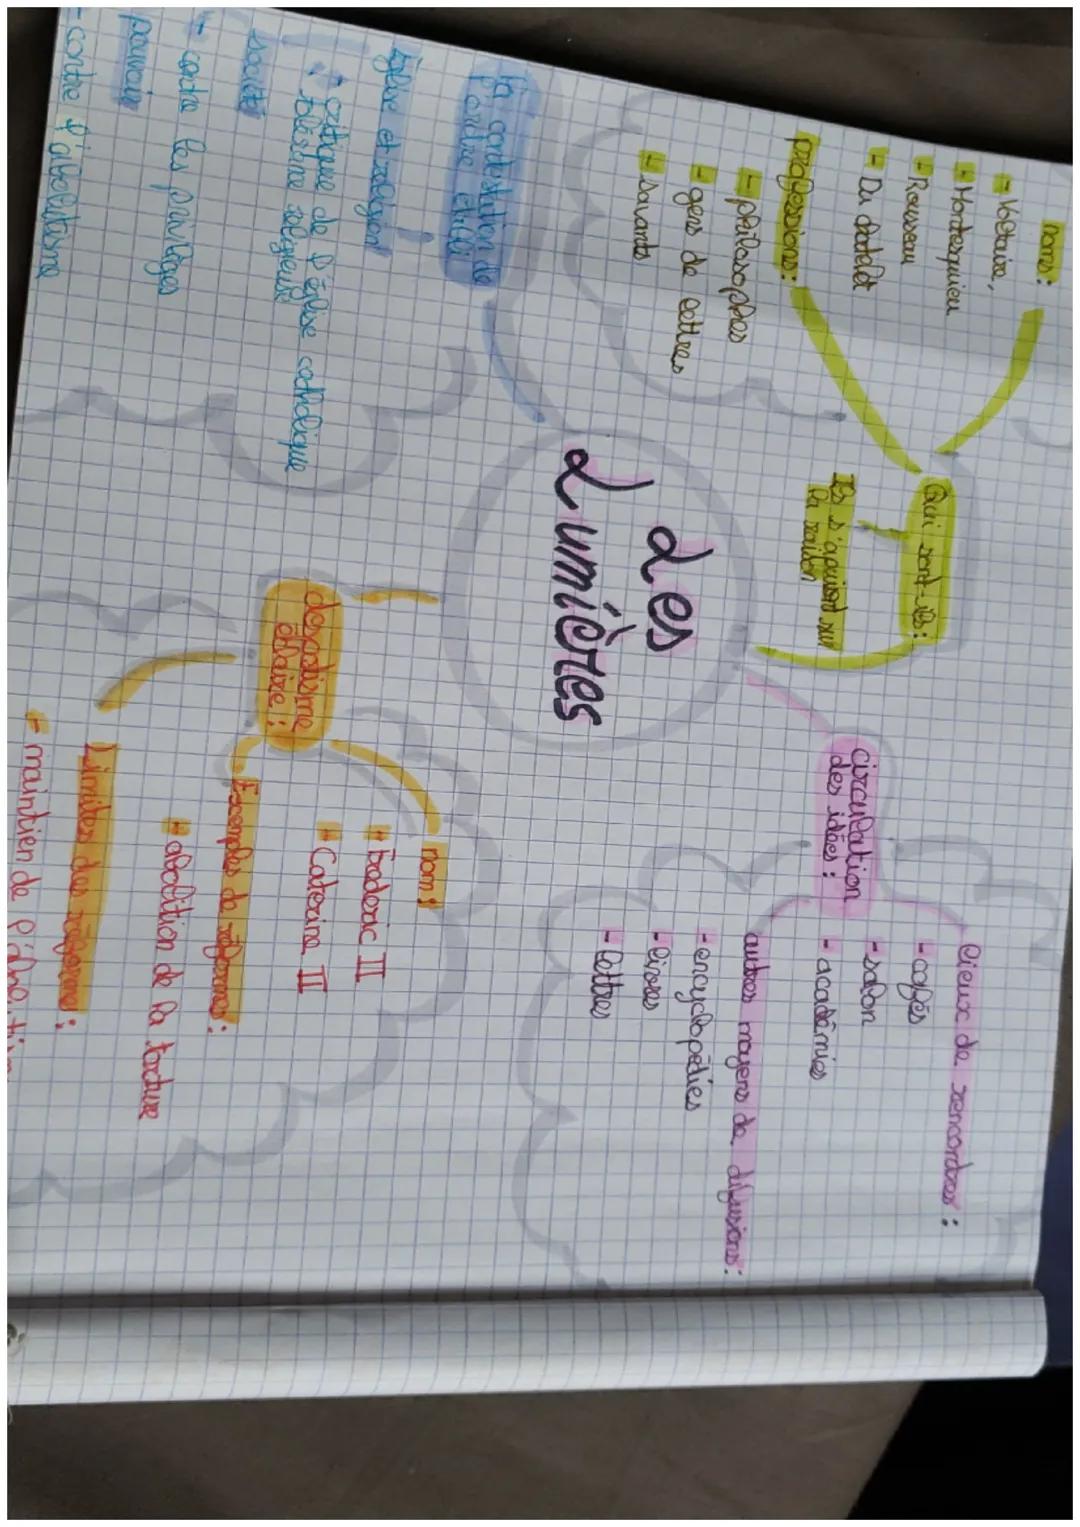 Les
Lumières
Qui sont-ils :
noms :
- Voltaire,
- Montesquieu
- Rousseau
- Du chatelet
professions :
- philosophes
- gens de lettres
- savants
Ils s'appuient sur
la raison
circulation
des idées :
lieux de rencontres :
- cafés
- salon
- académies
autres moyens de difusions :
- encyclopédies
- livres
- lettres
la contestation de
l'ordre établi
Église et religion
- critique de l'Église catholique
- tolérance religieuse
société
- contre les privilèges
pouvoir
- contre l'absolutisme
despotisme
éclairé :
nom :
- Frederic II
- Caterina II
Exemples de réformes :
- abolition de la torture
Limites des réformes :
- maintien de